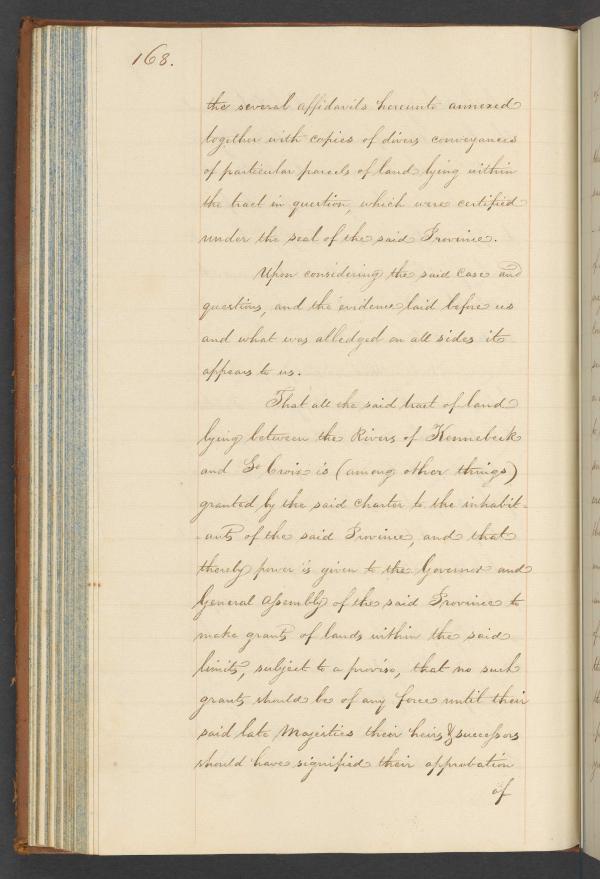 168.
the several affidavits hereunto annexed
together with copies of divers conveyances
of particular parcels of land lying within
the tract in question, which were certified
under the seal of the said Province.
Upon considering the said Case and
questions, and the evidence laid before us
and what was alledged on all sides it
appears to us.
That all the said tract of land
lying between the Rivers of Kennebeck
and St Croix is (among other things)
granted by the said Charter to the inhabit-
-ants of the said Province, and that
thereby power is given to the Governor and
General Assembly of the said Province to
make grants of lands within the said
limits, subject to a proviso, that no such
grants should be of any force until their
said late Majesties their heirs & successors
should have signified their approbation
of